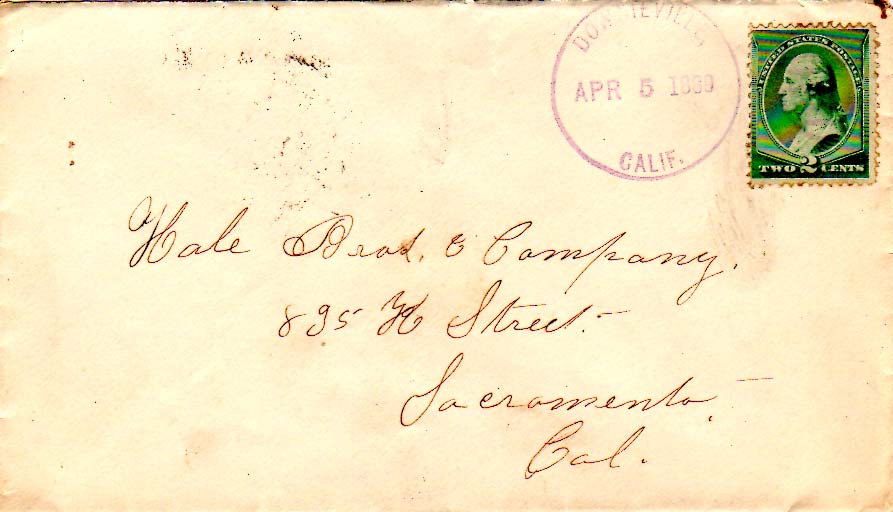 DOWNIEVILLE,
APR 5
CALIF.
UNITED STATES POSTAGE
TWO 2 CENTS
Hale Bros. & Company.
835 K Street.
Sacramento,
Cal.